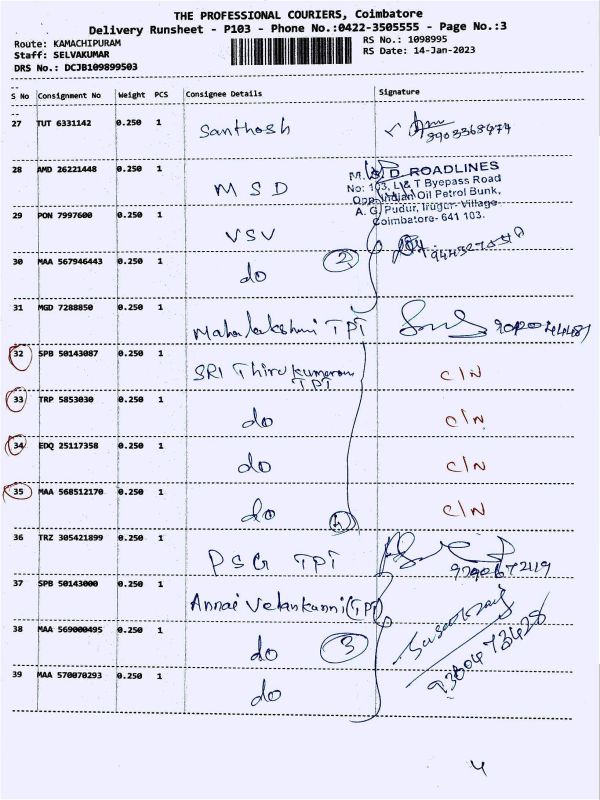 THE PROFESSIONAL COURIERS, Coimbatore
Delivery Runsheet - P103 - Phone No.:0422-3505555 - Page No.:3
Route: KAMACHIPURAM
Staff: SELVAKUMAR
DRS No.: DCJB109899503
RS No.: 1098995
RS Date: 14-Jan-2023
S No Consignment No Weight PCS Consignee Details Signature
27 TUT 6331142 0.250 1 Santhosh
28 AMD 26221448 0.250 1 MSD
D. ROADLINES
No: 103, L & T Byepass Road
Opp. Indian Oil Petrol Bunk,
A. G. Pudur, Irugur Village
Coimbatore- 641 103.
29 PON 7997600 0.250 1 VSV
30 MAA 567946443 0.250 1 do 2
31 MGD 7288850 0.250 1 Mahalakshmi TPT
32 SPB 50143087 0.250 1 SRI Thirukumaran TPT C/N
33 TRP 5853030 0.250 1 do C/N
34 EDQ 25117358 0.250 1 do C/N
35 MAA 568512170 0.250 1 do 4 C/N
36 TRZ 305421899 0.250 1 PSG TPT
37 SPB 50143000 0.250 1 Annai Velankanni (TPT)
38 MAA 569000495 0.250 1 do 3
39 MAA 570070293 0.250 1 do
4